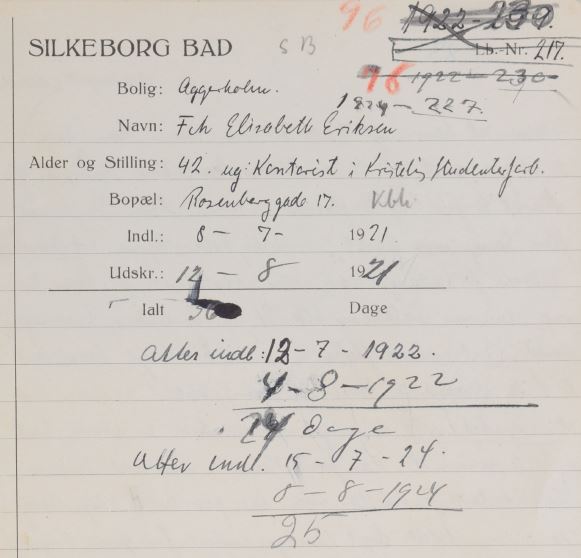 96 1922-230.
SILKEBORG BAD S B Lb.-Nr. 217.
96 1922-230
Bolig: Aggerholm. 1924-227.
Navn: Frk Elisabeth Eriksen
Alder og Stilling: 42. ug. Kontorist i Kristelig Studenterforb.
Bopæl: Rosenborggade 17. Kbh.
Indl.: 8- 7- 1921.
Udskr.: 12 - 8 1921
Ialt 36 Dage
Atter indl: 12-7-1922.
4-8-1922
24 dage
Atter indl. 15-7-24.
8-8-1924
25